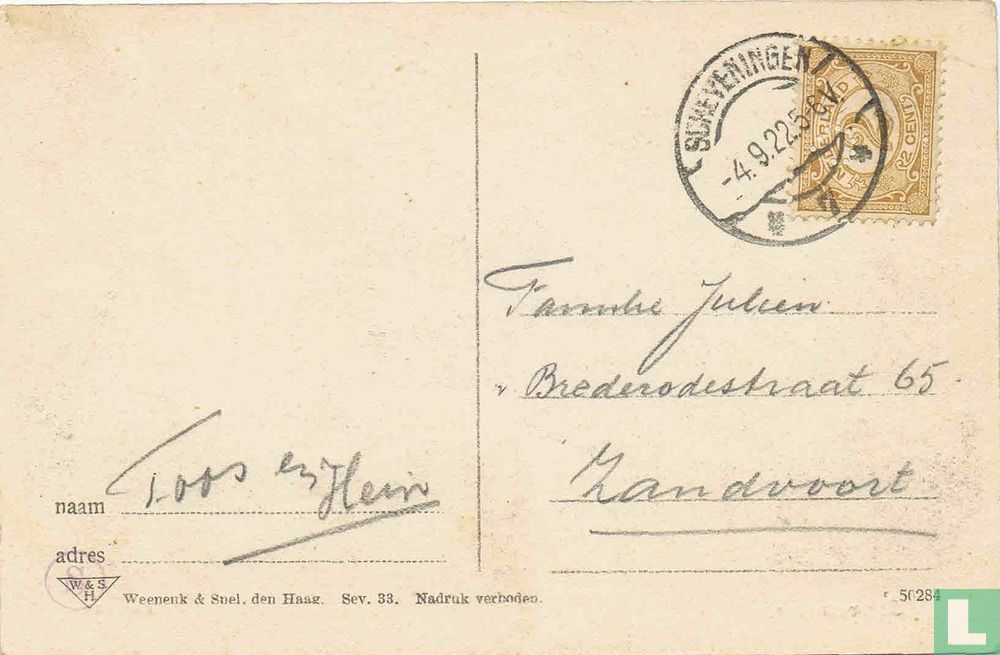 SCHEVENINGEN
-4.9.22.5-6V
NEDERLAND
2½ CENT
Familie Julien
v Brederodestraat 65
Zandvoort
Toos en Hein
naam
adres
W. & S.
H.
Weenenk & Snel, den Haag. Sev. 33. Nadruk verboden.
50284
L